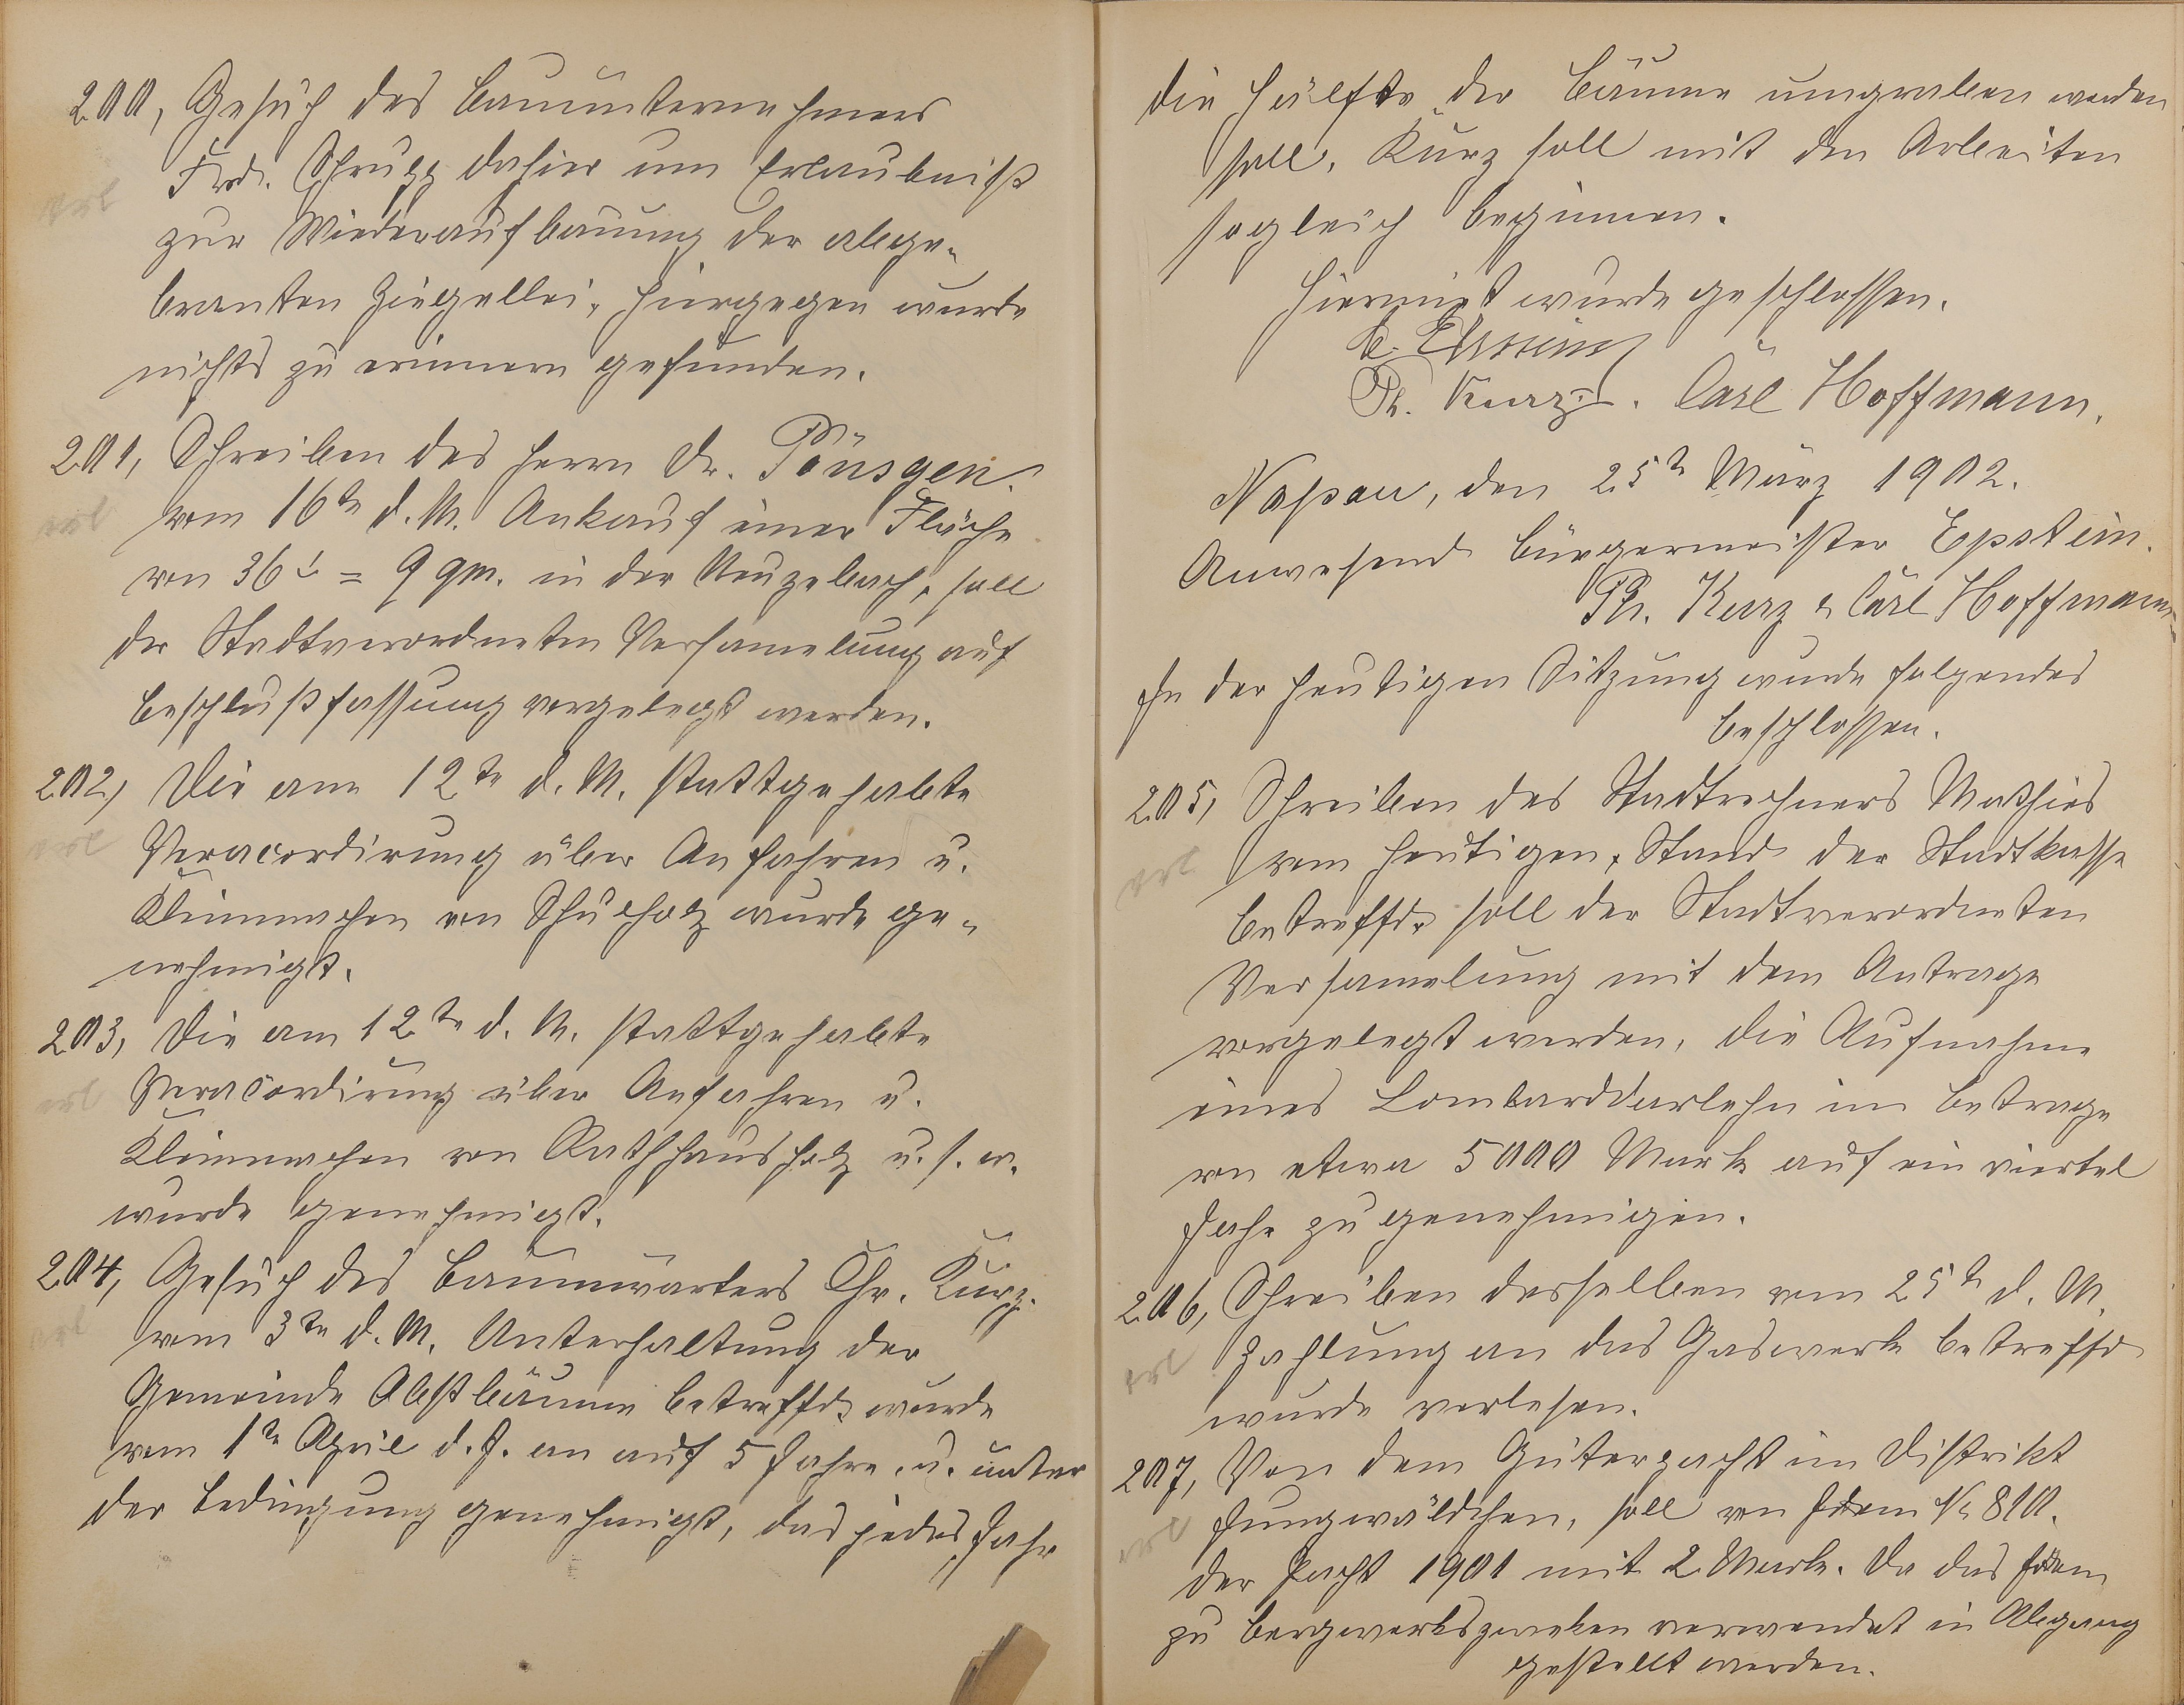 200, Gesuch des Bauunternehmers
Frd. Schrupp dahier um Erlaubniß
erl
zur Wiederaufbauung der abge-
branten Ziegellei, hiergegen wurde
nichts zu erinnern gefunden.
201, Schreiben des Herrn Dr. Pönsgen
erl
vom 16te d. M. Ankauf einer Fläche
von 36 = 9 qm. in der Neuzebach, soll
der Stadtverordneten Versamelung auf
Beschlußfassung vorgelegt werden.
202, Die am 12te d. M. stattgehabte
erl
Veracordirung über Anfahren u.
Kleinmachen von Schulholz wurde ge-
nehmigt.
203, Die am 12te d. M. stattgehabte
erl
Veracordirung über Anfahren u.
Kleinmachen von Rathhausholz u. s. w.
wurde genehmigt.
204, Gesuch des Baumwarters Chr. Kurz
erl
vom 3te d. M. Unterhaltung der
Gemeinde Obstbäume betreffd. wurde
vom 1te April d. J. an auf 5 Jahre u. unter
der Bedingung genehmigt, das jedes Jahr
die Hälfte der Bäume umgraben werden
soll. Kurz soll mit den Arbeiten
sogleich beginnen.
Hiermit wurde geschlossen.
Epstein
Ph. Kurz. Carl Hoffmann.
Nassau, den 25te März 1902.
Anwesend Bürgermeister Epstein.
Ph. Kurz & Carl Hoffmann
In der heutigen Sitzung wurde folgendes
beschlossen.
205, Schreiben des Stadtrechners Mathies
erl
vom heutigen, Stand der Stadtkasse
betreffd. soll der Stadtverordneten
Versamelung mit dem Antrage
vorgelegt werden, die Aufnahme
eines Lombarddarlehn im Betrage
von etwa 5000 Mark auf ein viertel
Jahr zu genehmigen.
206, Schreiben desselben vom 25te d. M.
erl
Zahlung an das Gaswerk betreffd
wurde verlesen.
207, Von dem Güterpacht im Distrikt
erl
Jungwäldchen, soll von Idem № 810.
der Pacht 1901 mit 2 Mark. Da das Idem
zu Bergwerkszweken verwendet in Abgang
gestellt werden.